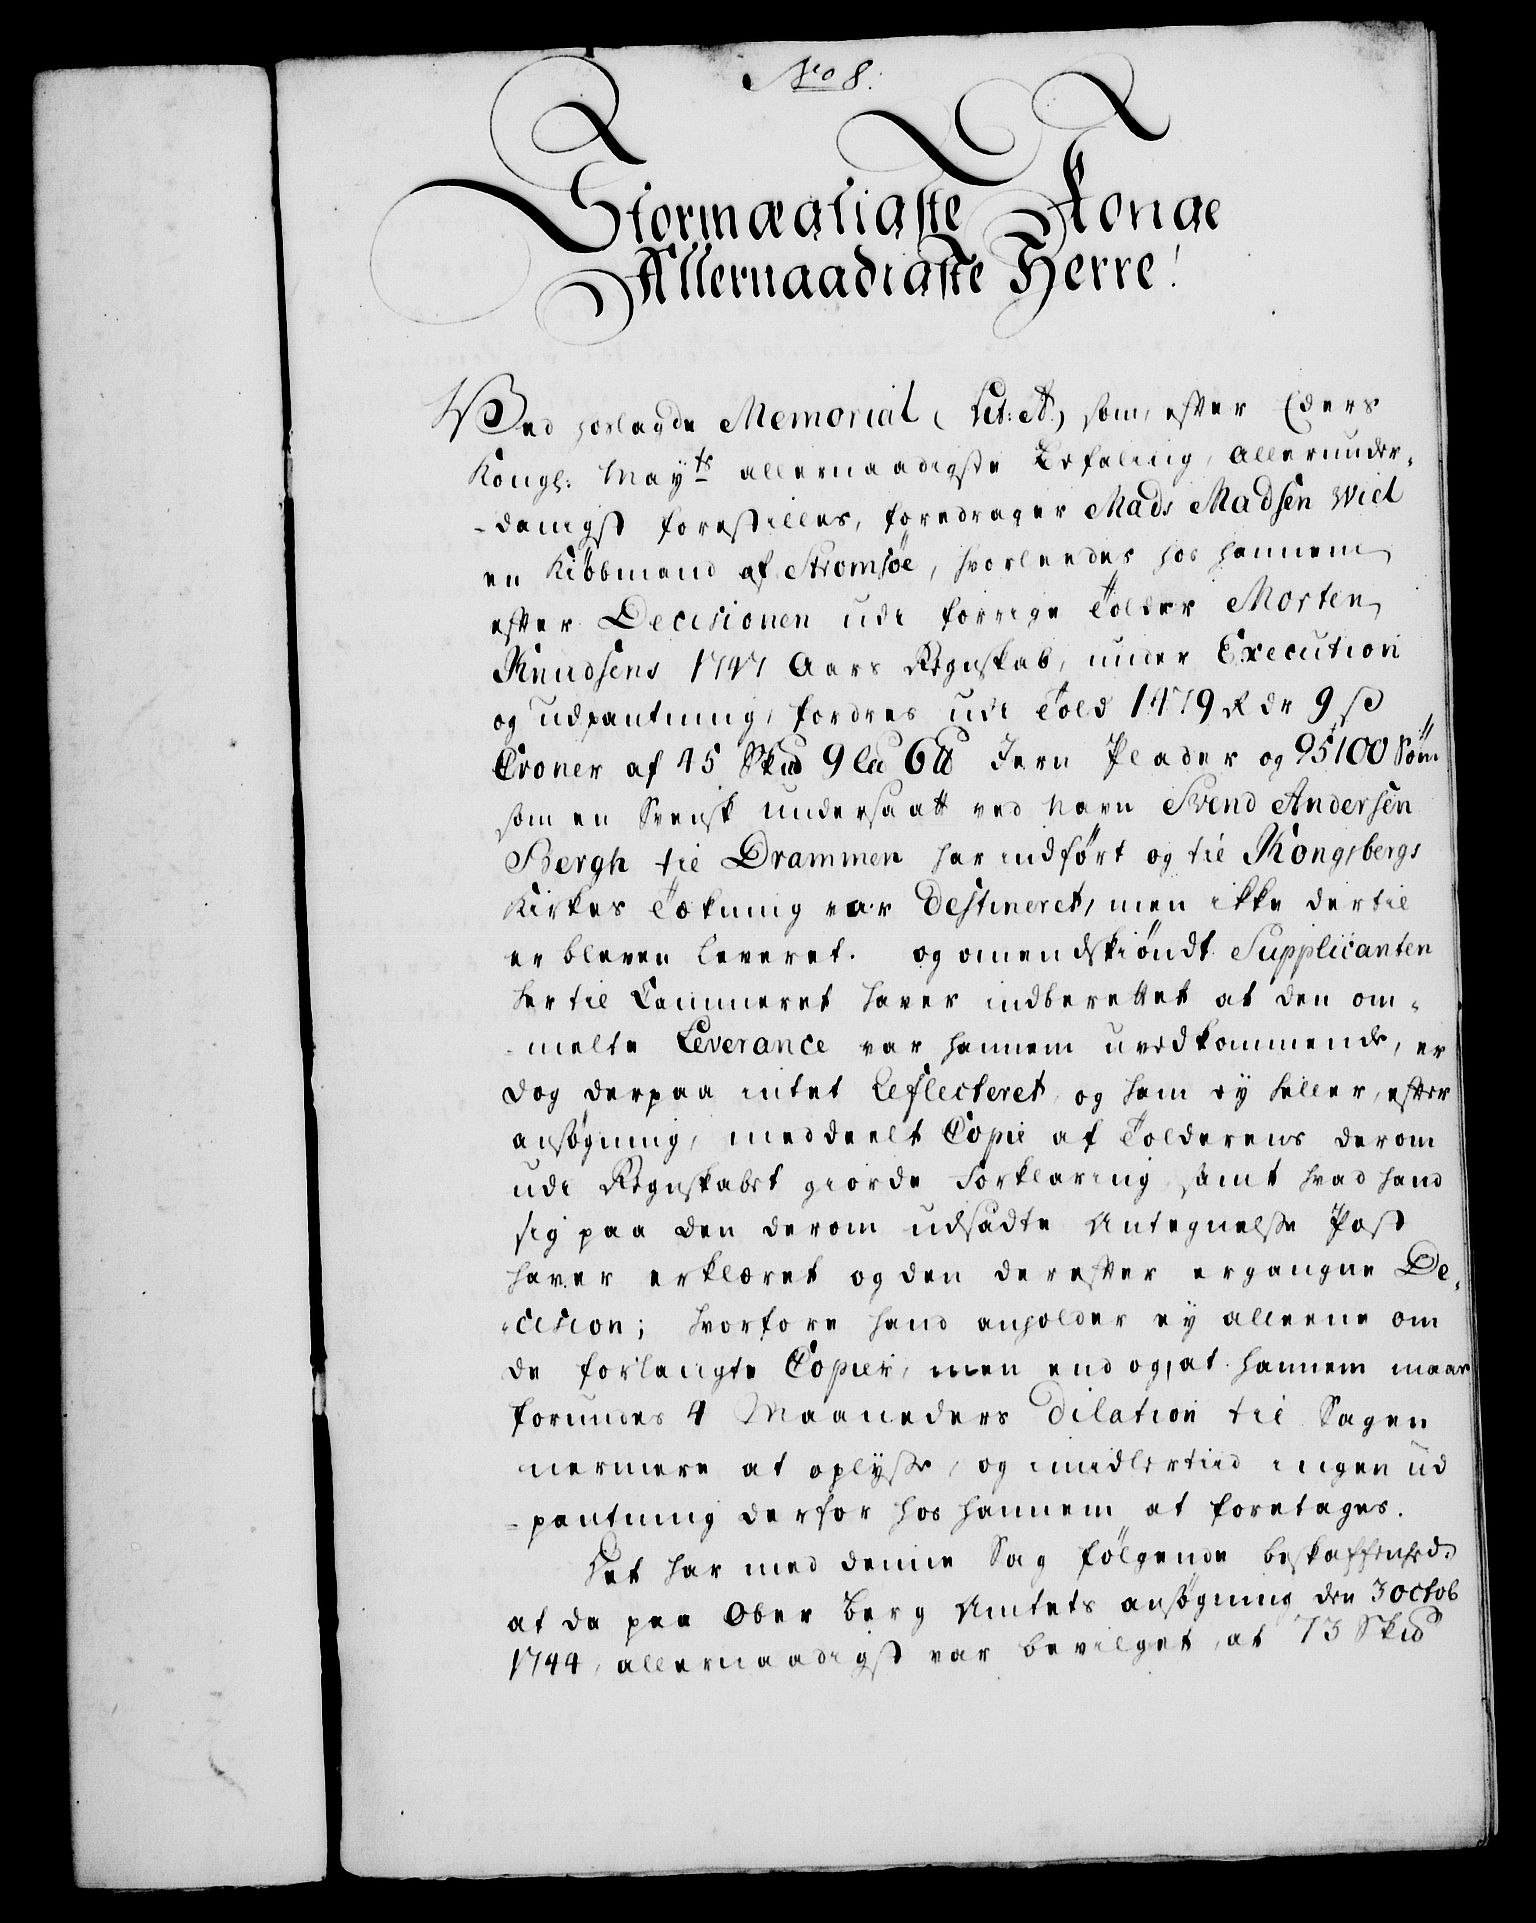 No 8.
Stormægtigste Konge
Allernaadigste Herre!
Ved hoslagde Memorial (Lit: A) som, efter Eders
Kongl: Mayts allernaadigste Befaling, allerunder-
-danigst forestilles, foredrager Mads Madsen Wiel
en Kiöbmand af Stromsöe, hvorleedes hos hannem
efter Decisionen udi forrige Tolder Morten
Knudsens 1747 Aars Regnskab, under Execution
og udpantning, fordres udi Told 1479 Rdr 9 ß
Croner af 45 Skd 9 Ld 6 lb Jern Plader og 95100 Söm
som en Svensk undersaatt ved Navn Svend Andersen
Bergh til Drammen har indfört og til Kongsbergs
Kirkes Tækning var Destineret, men ikke dertil
er bleven leveret. og omendskiöndt Supplicanten
her til Cammeret haver indberettet at den om-
-melte Leverance var hannem uvedkommende, er
dog derpaa intet Reflecteret, og ham ey heller, efter
ansögning, meddeelt Copie af Tolderens derom
udi Regnskabet giorde Forklaring samt hvad hand
sig paa den derom udsadte Antegnelse Post
haver erklæret og den derefter ergangne De-
-cision; hvorfore hand anholder ey alleene om
de forlangte Copier, men end og, at hannem maae
forundes 4 Maaneders Dilation til Sagen
nermere at oplyse, og imidlertiid ingen ud
-pantning derfor hos hannem at foretages.
Det har med denne Sag fölgende beskaffenhed:
at da paa Ober Berg Amtets ansögning den 3 octob
1744, allernaadigst var bevilget, at 73 Skd